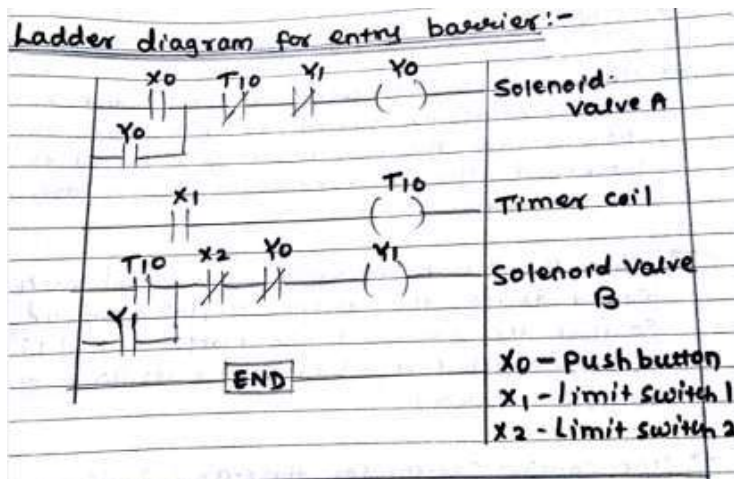 Ladder diagram for entry barrier:-
X0 T10 Y1 Y0 Solenoid
valve A
Y0
X1 T10 Timer coil
T10 X2 Y0 Y1 Solenord valve
B
Y1
END
X0 - Push button
X1 - limit switch 1
X2 - Limit switch 2